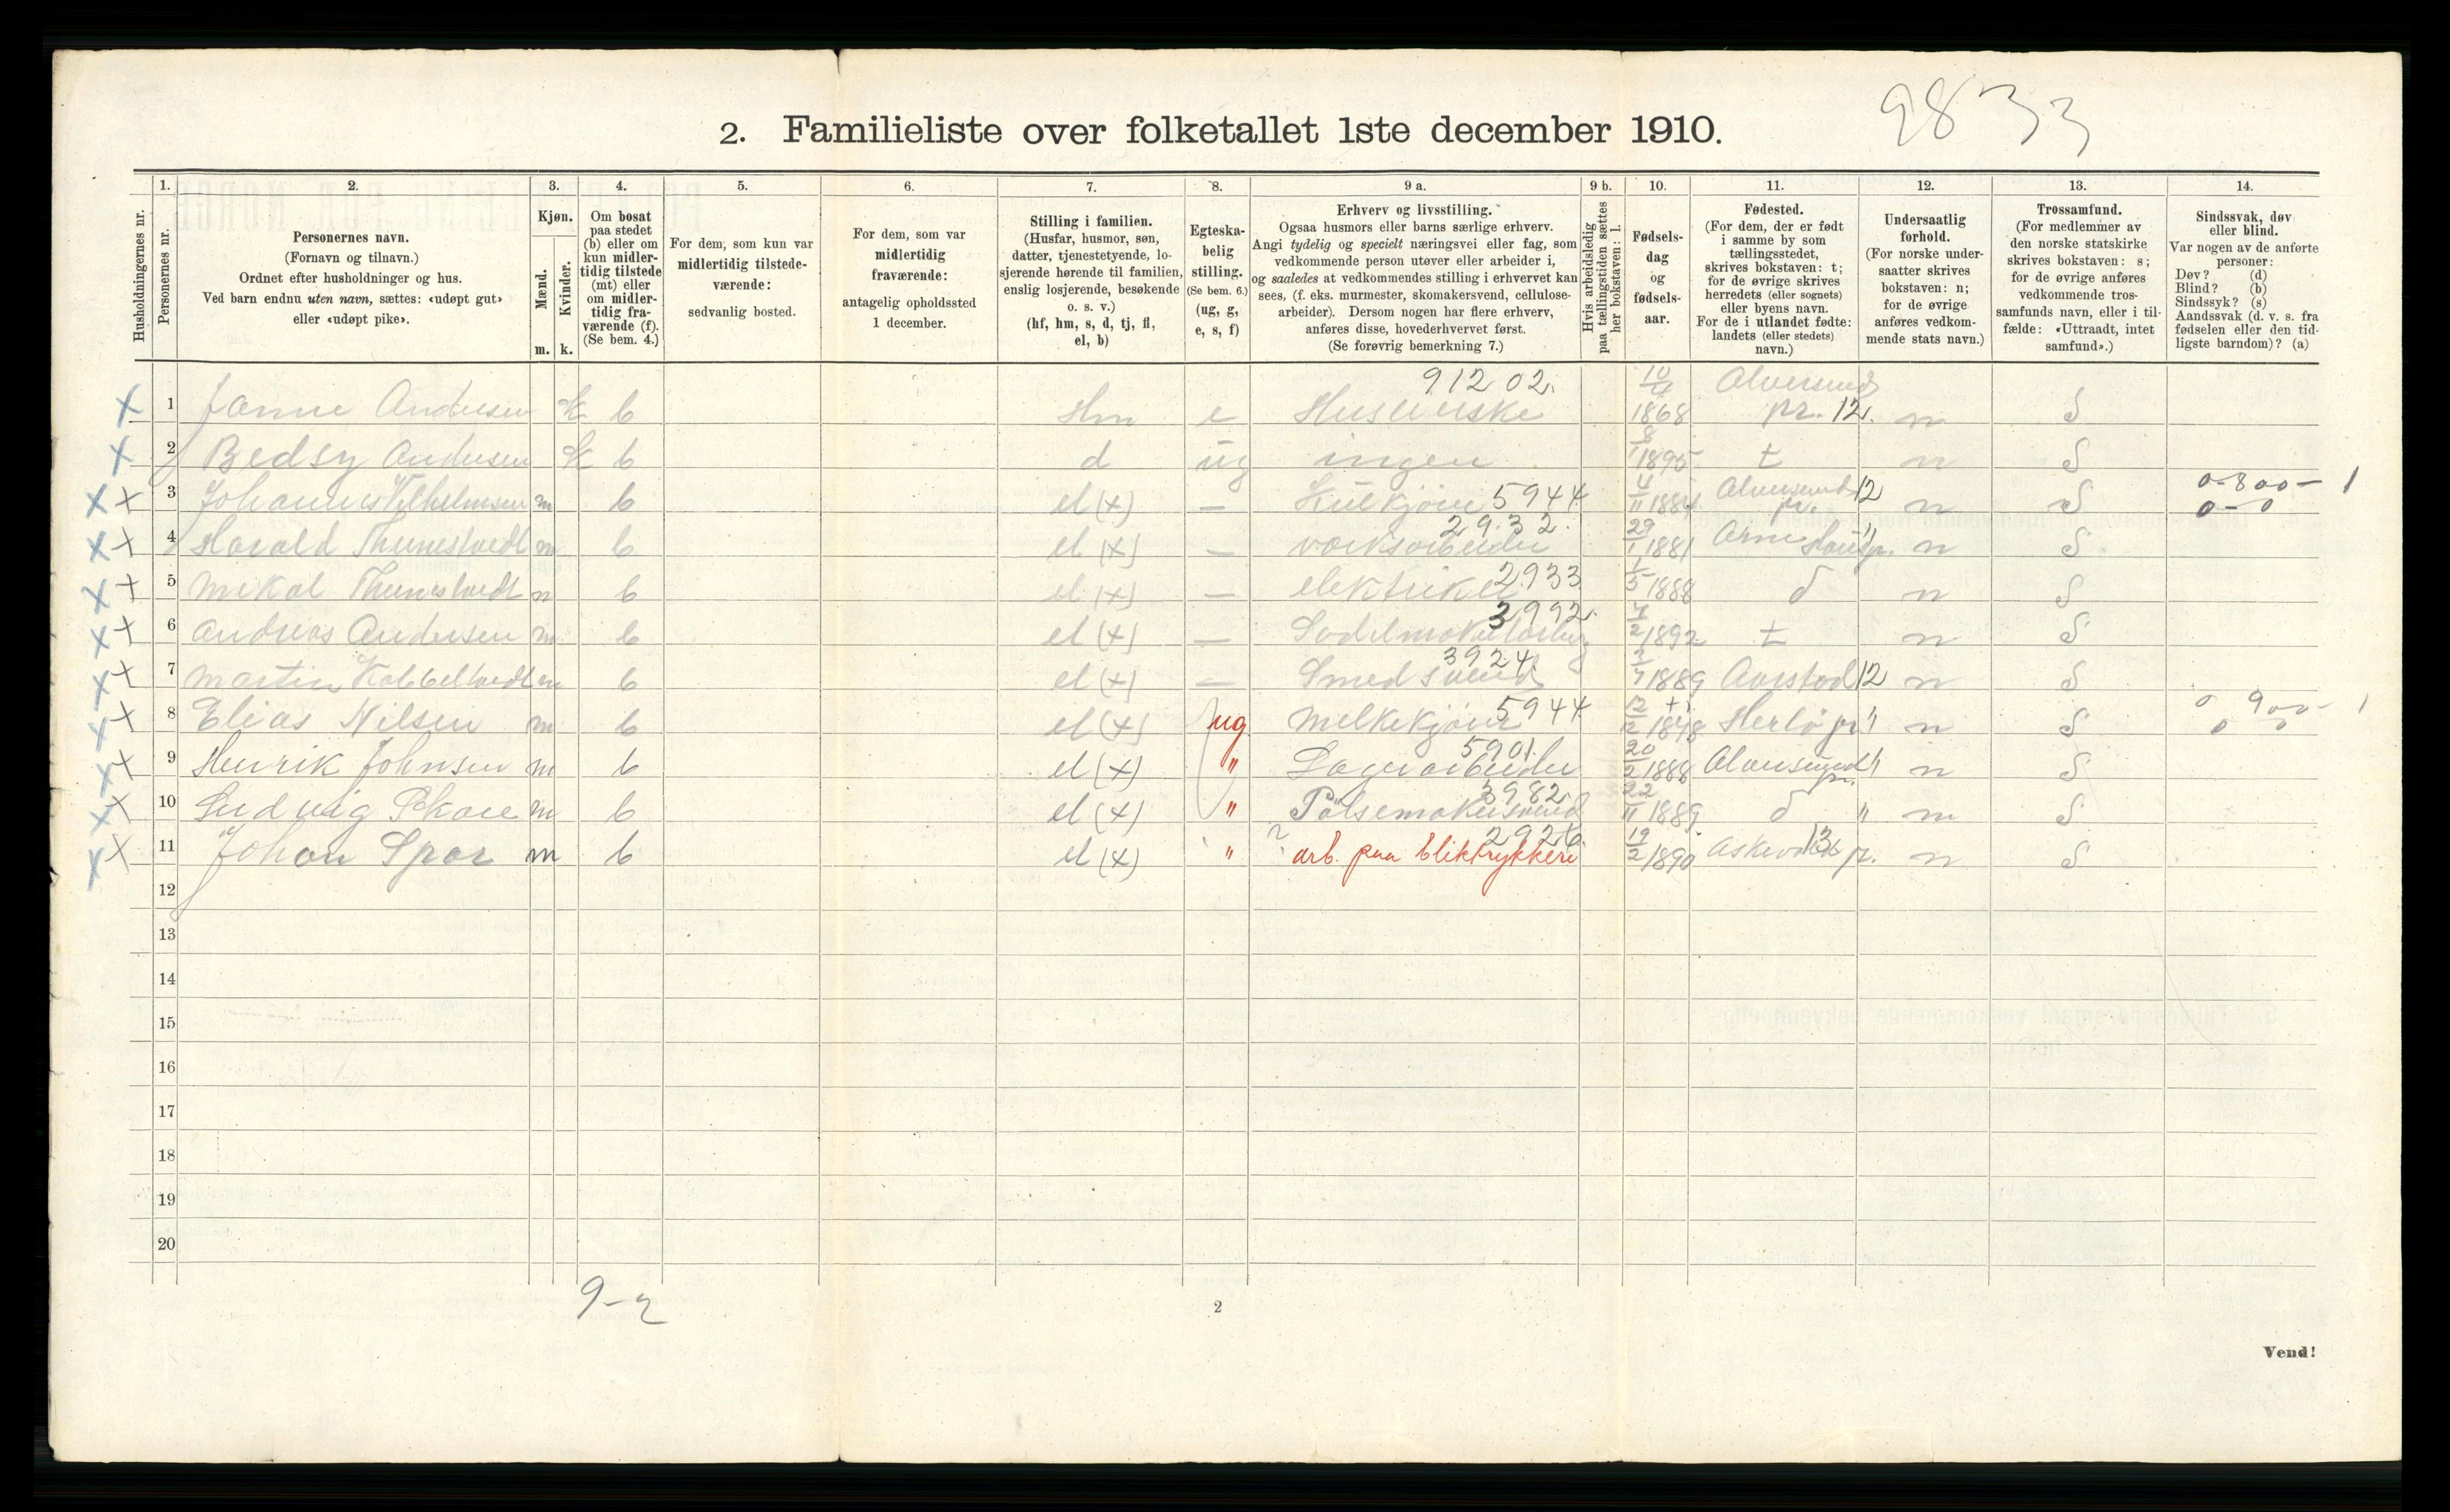 9833
2. Familieliste over folketallet 1ste december 1910.
1. 2. 3. 4. 5. 6. 7. 8. 9 a. 9 b. 10. 11. 12. 13. 14.
Husholdningernes nr.
Personernes nr.
Personernes navn.
(Fornavn og tilnavn.)
Ordnet efter husholdninger og hus.
Ved barn endnu uten navn, sættes: «udøpt gut»
eller «udøpt pike».
Kjøn.
Mænd.
Kvinder.
m. k.
Om bosat
paa stedet
(b) eller om
kun midler-
tidig tilstede
(mt) eller
om midler-
tidig fra-
værende (f).
(Se bem. 4.)
For dem, som kun var
midlertidig tilstede-
værende:
sedvanlig bosted.
For dem, som var
midlertidig
fraværende:
antagelig opholdssted
1 december.
Stilling i familien.
(Husfar, husmor, søn,
datter, tjenestetyende, lo-
sjerende hørende til familien,
enslig losjerende, besøkende
o. s. v.)
(hf, hm, s, d, tj, fl,
el, b)
Egteska-
belig
stilling.
(Se bem. 6.)
(ug, g,
e, s, f)
Erhverv og livsstilling.
Ogsaa husmors eller barns særlige erhverv.
Angi tydelig og specielt næringsvei eller fag, som
vedkommende person utøver eller arbeider i,
og saaledes at vedkommendes stilling i erhvervet kan
sees, (f. eks. murmester, skomakersvend, cellulose-
arbeider). Dersom nogen har flere erhverv,
anføres disse, hovederhvervet først.
(Se forøvrig bemerkning 7.)
Hvis arbeidsledig
paa tællingstiden sættes
her bokstaven: l.
Fødsels-
dag
og
fødsels-
aar.
Fødested.
(For dem, der er født
i samme by som
tællingsstedet,
skrives bokstaven: t;
for de øvrige skrives
herredets (eller sognets)
eller byens navn.
For de i utlandet fødte:
landets (eller stedets)
navn.)
Undersaatlig
forhold.
(For norske under-
saatter skrives
bokstaven: n;
for de øvrige
anføres vedkom-
mende stats navn.)
Trossamfund.
(For medlemmer av
den norske statskirke
skrives bokstaven: s;
for de øvrige anføres
vedkommende tros-
samfunds navn, eller i til-
fælde: «Uttraadt, intet
samfund».)
Sindssvak, døv
eller blind.
Var nogen av de anførte
personer:
Døv? (d)
Blind? (b)
Sindssyk? (s)
Aandssvak (d. v. s. fra
fødselen eller den tid-
ligste barndom)? (a)
91202.
x 1 Janne Andersen k b Hm e 1868 Alversund pr. 12. n S
x 2 Bedsy Andersen k b d ug ingen 1895 t n S
x x 3 Johannes Vilhelmsen m b el (x) — Kulkjører 5944 4/11 1884 Alversund pr. 12 n S 0-800- 1
0-0
2932.
x x 4 Harald Thunestvedt m b el (x) — værksarbeider 29/1 1881 Arne Haus pr. " n S
x x 5 Mikal Thunestvedt m b el (x) — elektriker 2933 1/5 1888 d n S
3992.
x x 6 Andreas Andersen m b el (x) — 1892 t n S
3924.
x x 7 Martin Kobbeltvedt m b el (x) — Smedsvend 1889 Aarstad 12 n S
x x 8 Elias Nilsen m b el (x) ug Melkekjører 5944 12/2 1848 Herlø pr. " n S 0 900- 1
0 0
5901.
x x 9 Henrik Johnsen m b el (x) " Lagerarbeider 20/2 1888 Alversund pr. " n S
3982.
x x 10 Ludvig Skare m b el (x) " Pølsemakersvend 22/11 1889 d " n S
2926.
x x 11 Johan Spor m b el (x) " ? arb. paa bliktrykkeri 19/2 1890 Askevold 13 pr. n S
12
13
14
15
16
17
18
19
20
9-2
2
Vend!